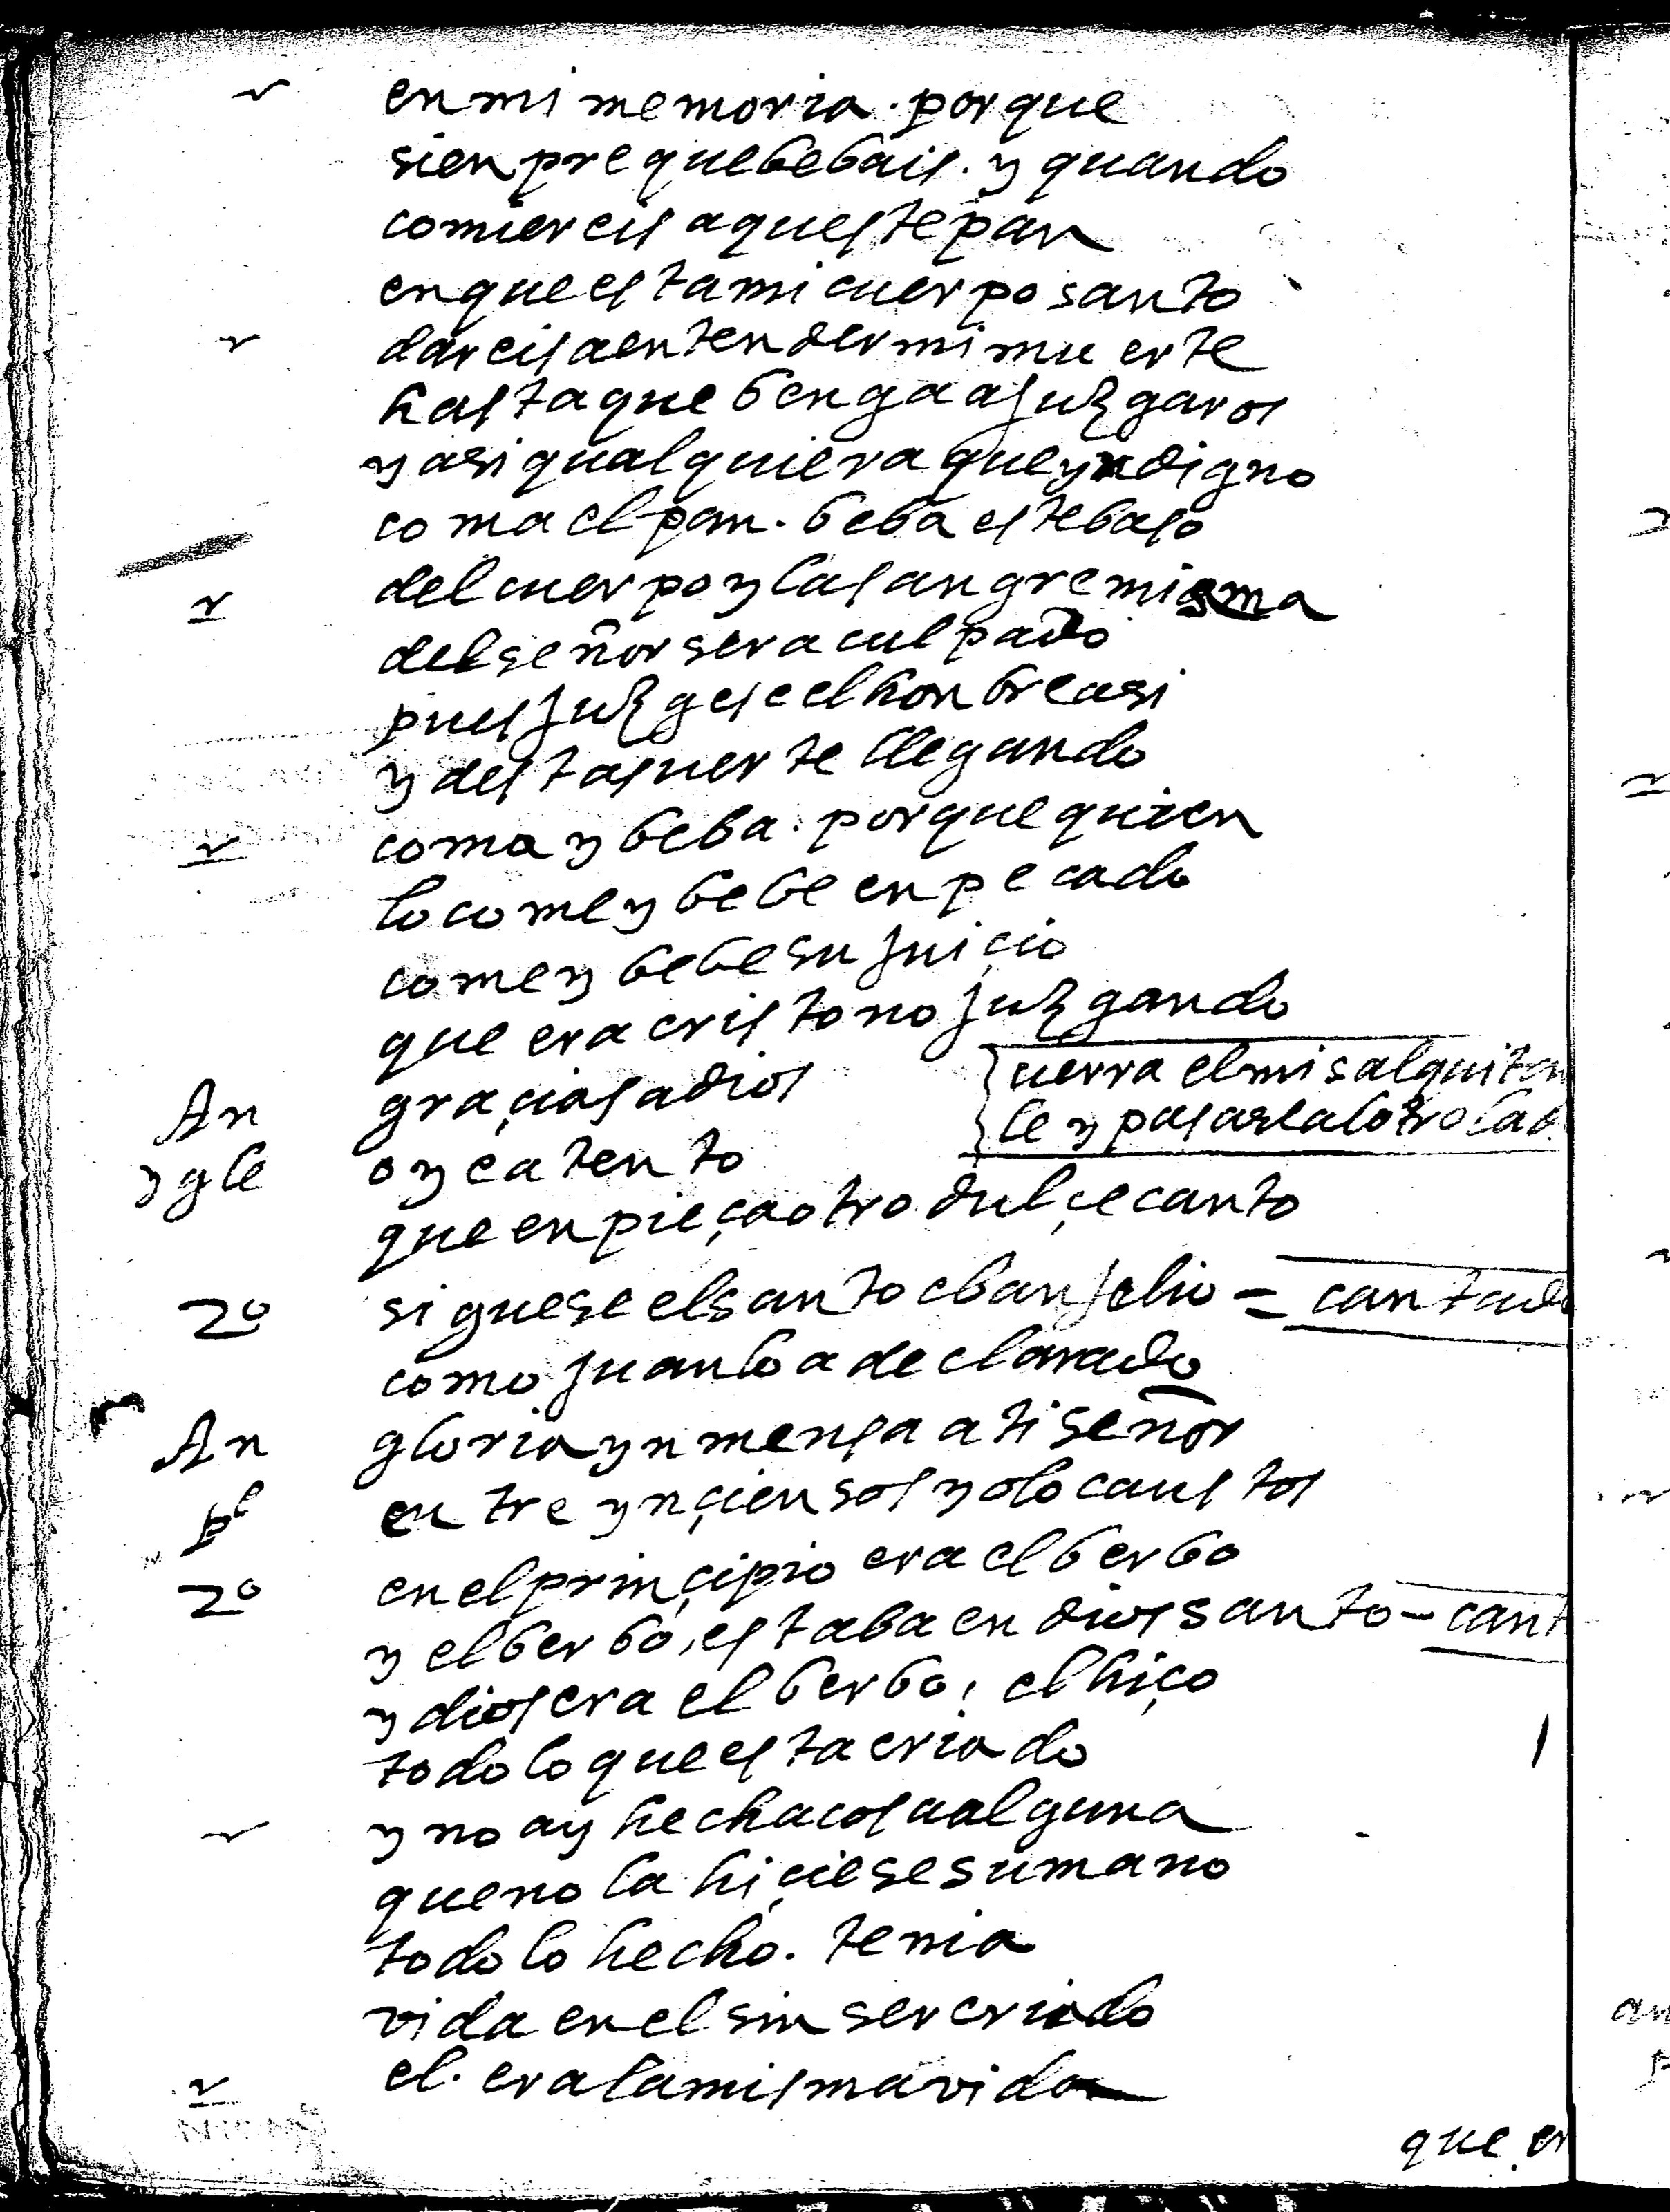 en mi memoria. porque
sienpre que bebais. y quando
comiereis aqueste pan
en que esta mi cuerpo santo
dareis a entender mi muerte
hasta que benga a juzgaros
y asi qualquiera que yndigno
coma el pan. beba este baso
del cuerpo y la sangre misma
del señor sera culpado
pues juzgese el honbre asi
y desta suerte llegando
coma y beba. porque quien
lo come y bebe en pecado
come y bebe su juiçio
que era cristo no juzgando
An graçias a dios
çierra el misal quitan
le y pasasele al otro lad
ygle oye atento
que enpieça otro dulçe canto
2º siguese el santo ebanjelio = cantado
como juan lo a declarado
An gloria ynmensa a ti señor
pl entre ynçiensos y olocaustos
2º en el prinçipio era el berbo
y el berbo, estaba en dios santo - cant
y dios era el berbo, el hiço
todo lo que esta criado
y no ay hecha cosa alguna
que no la hiçiese su mano
todo lo hecho. tenia
vida en el sin ser criado
el. era la misma vida
que er